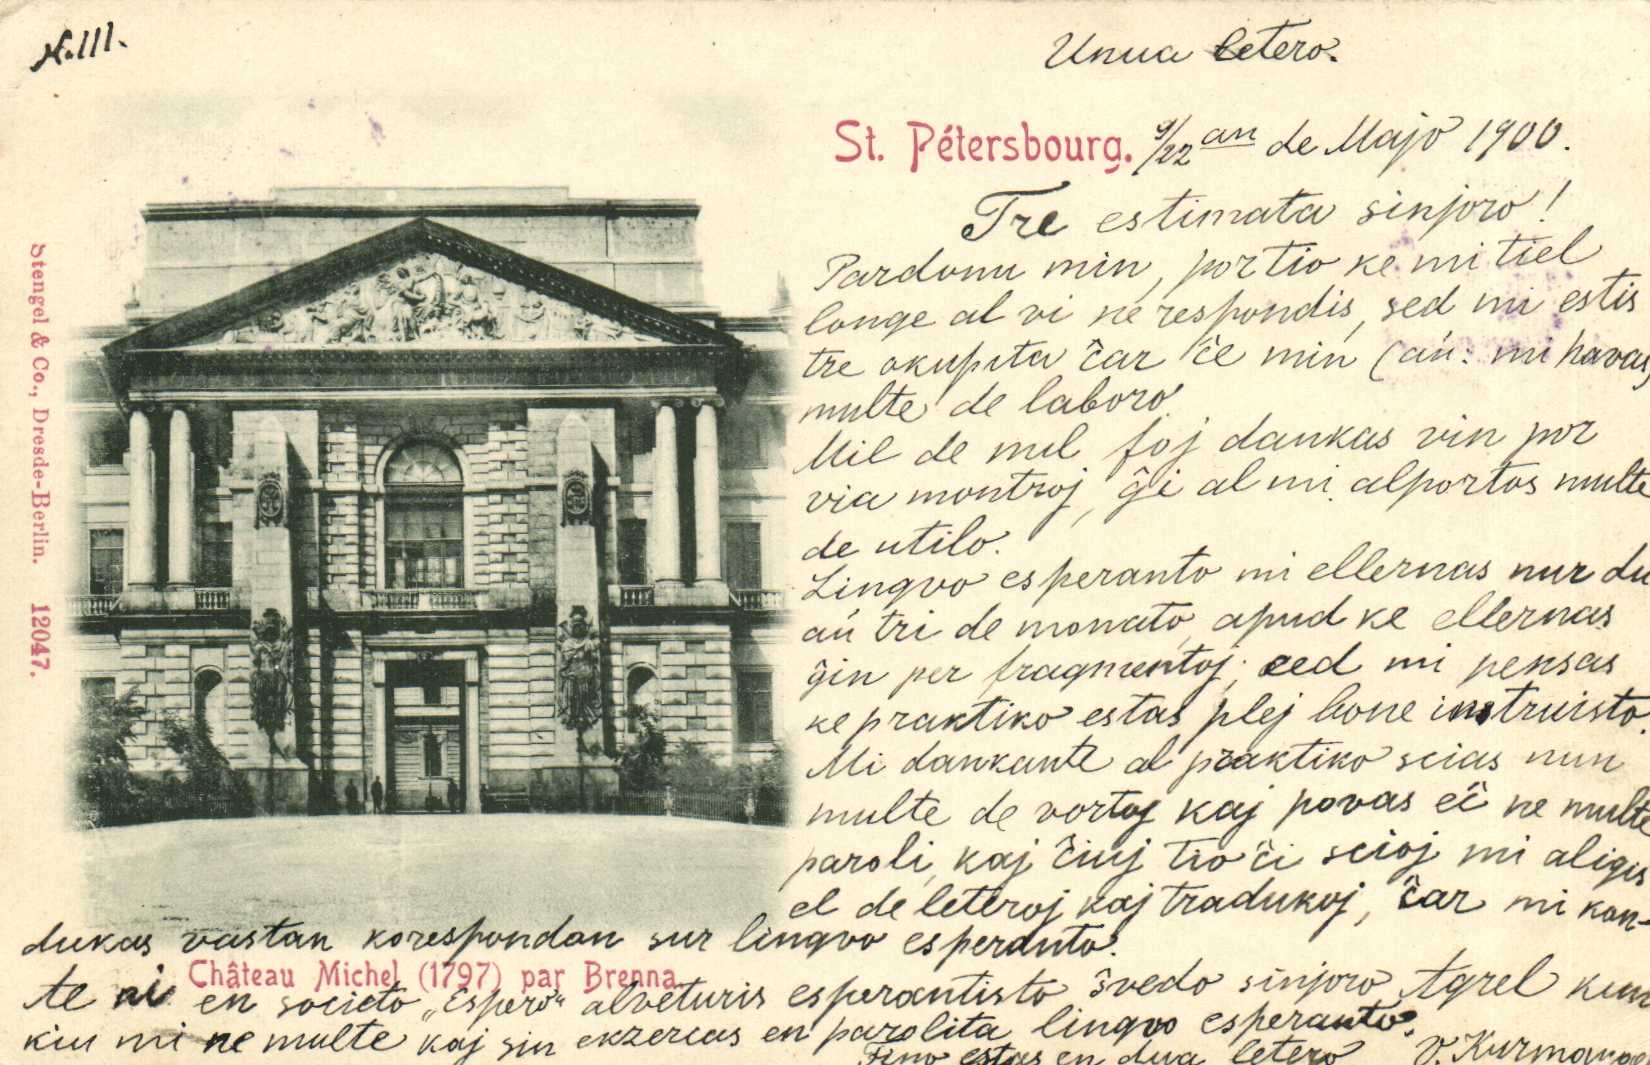 N. III.
Unua letero.
St. Pétersbourg. 9/22 an de Majo 1900.
Tre estimata sinjoro!
Pardonu min, por tio ke mi tiel
longe al vi ne respondis, sed mi estis
tre okupita ĉar ĉe min (aŭ: mi havas)
multe de laboro.
Mil de mil foj dankas vin por
via montroj, ĝi al mi alportos multe
de utilo.
Lingvo esperanto mi ellernas nur du
aŭ tri de monato, apud ke ellernas
ĝin per fragmentoj; sed mi pensas
ke praktiko estas plej bone instruisto.
Mi dankante al praktiko scias nun
multe de vortoj kaj povas eĉ ne multe
paroli, kaj ĉiuj tio ĉi scioj mi aligis
el de leteroj kaj tradukoj, ĉar mi kon-
dukas vastan korespondan sur lingvo esperanto.
Château Michel (1797) par Brenna
en societo „Espero“ alveturis esperantisto ŝvedo sinjoro Agrel kun
kiu mi ne multe kaj sin ekzercas en parolita lingvo esperanto.
Fino estas en dua letero
Stengel & Co., Dresde-Berlin. 12047.